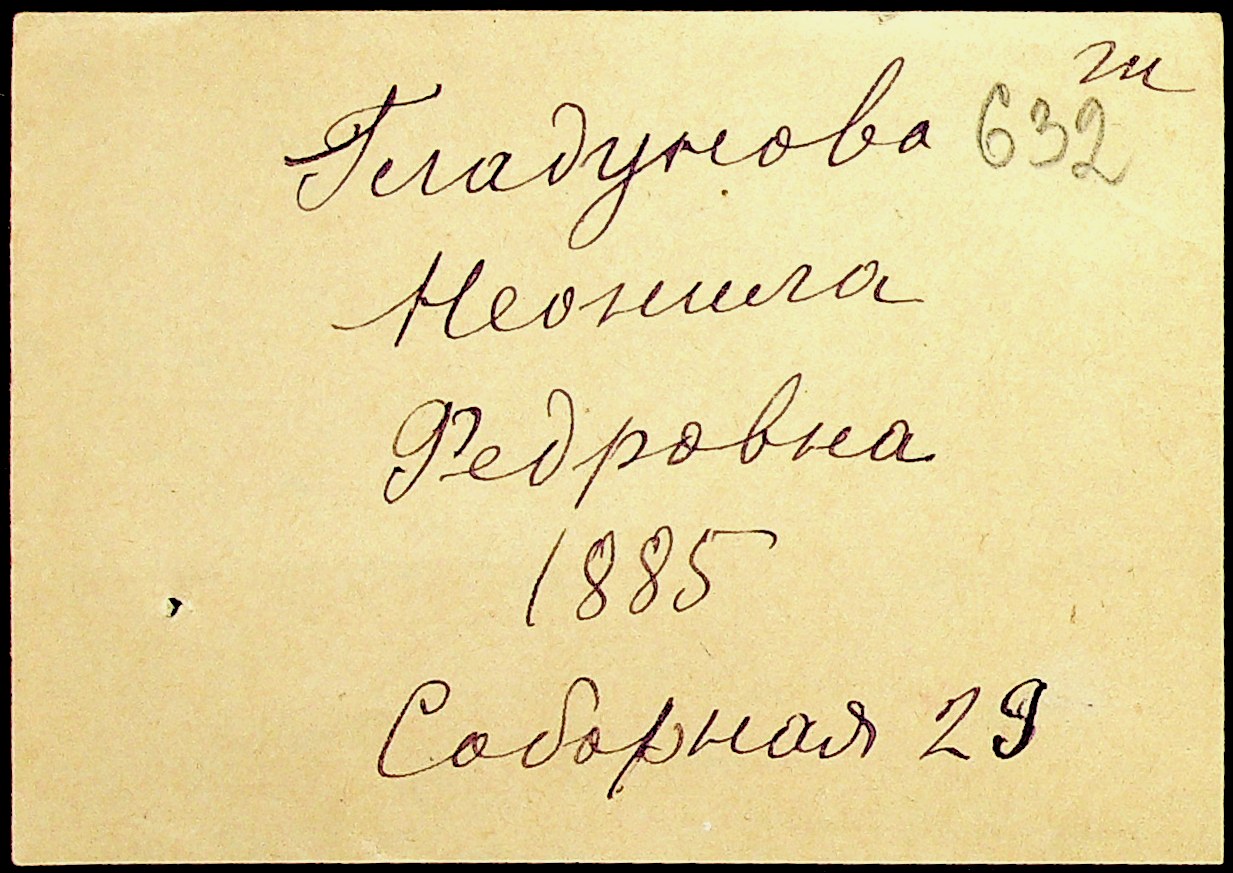 Гладунова 632
Неонила
Федровна
1885
Соборная 29